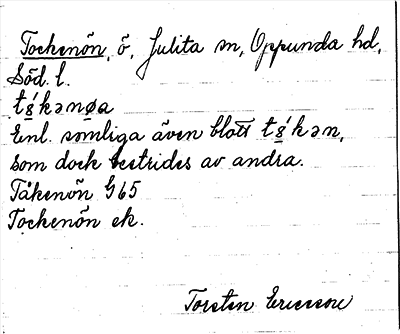 Tockenön, ö, Julita sn, Oppunda hd,
Söd. l.
tǫ́kənøa
Enl. somliga även blott tǫ́kən,
som dock bestrides av andra.
Tåkenön G65
Tockenön ek.
Torsten Ericsson